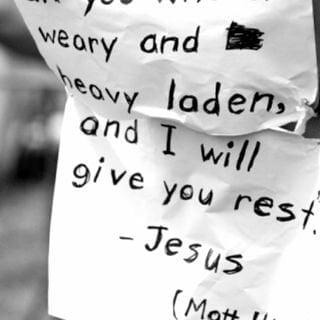 you
weary and
heavy laden,
and I will
give you rest.
- Jesus
(Matt